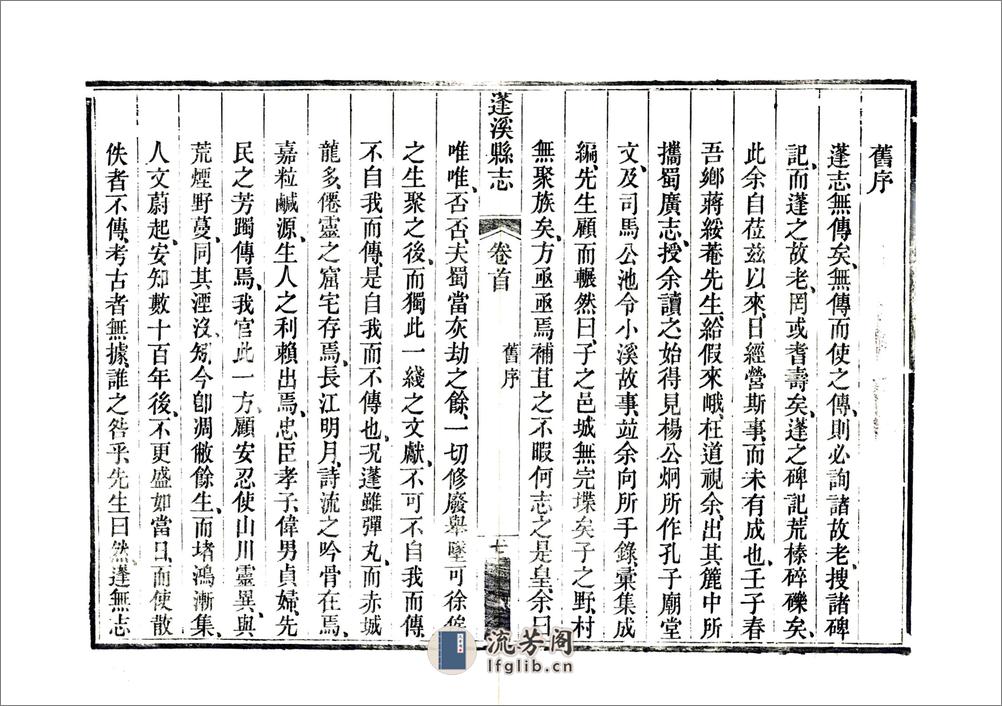 舊序
蓬志無傳矣、無傳而使之傳、則必詢諸故老、搜諸碑
記、而蓬之故老、罔或耆壽矣、蓬之碑記、荒榛碎礫矣、
此余自莅茲以來、日經營斯事、而未有成也、壬子春
吾鄉蔣綏菴先生、給假來峨、枉道視余、出其簏中所
攜蜀廣志、授余讀之、始得見楊公炯所作孔子廟堂
文、及司馬公池令小溪故事、竝余向所手錄、彙集成
編、先生顧而囅然曰、子之邑城無完堞矣、子之野、村
無聚族矣、方亟亟焉補苴之不暇、何志之是皇、余曰
蓬溪縣志
卷首
舊序
七
唯唯、否否、夫蜀當灰劫之餘、一切修廢舉墜、可徐俟
之生聚之後、而獨此一綫之文獻、不可不自我而傳
不自我而傳、是自我而不傳也、況蓬雖彈丸、而赤城
龍多、僊靈之窟宅存焉、長江明月、詩流之吟骨在焉、
嘉粒鹹源、生人之利賴出焉、忠臣孝子、偉男貞婦、先
民之芳躅傳焉、我官此一方、顧安忍使山川靈異、與
荒煙野蔓、同其湮沒、矧今卽凋敝餘生、而堵鴻漸集、
人文蔚起、安知數十百年後、不更盛如當日、而使散
佚者不傳、考古者無據、誰之咎乎、先生曰、然、蓬無志
流芳阁
lfglib.cn